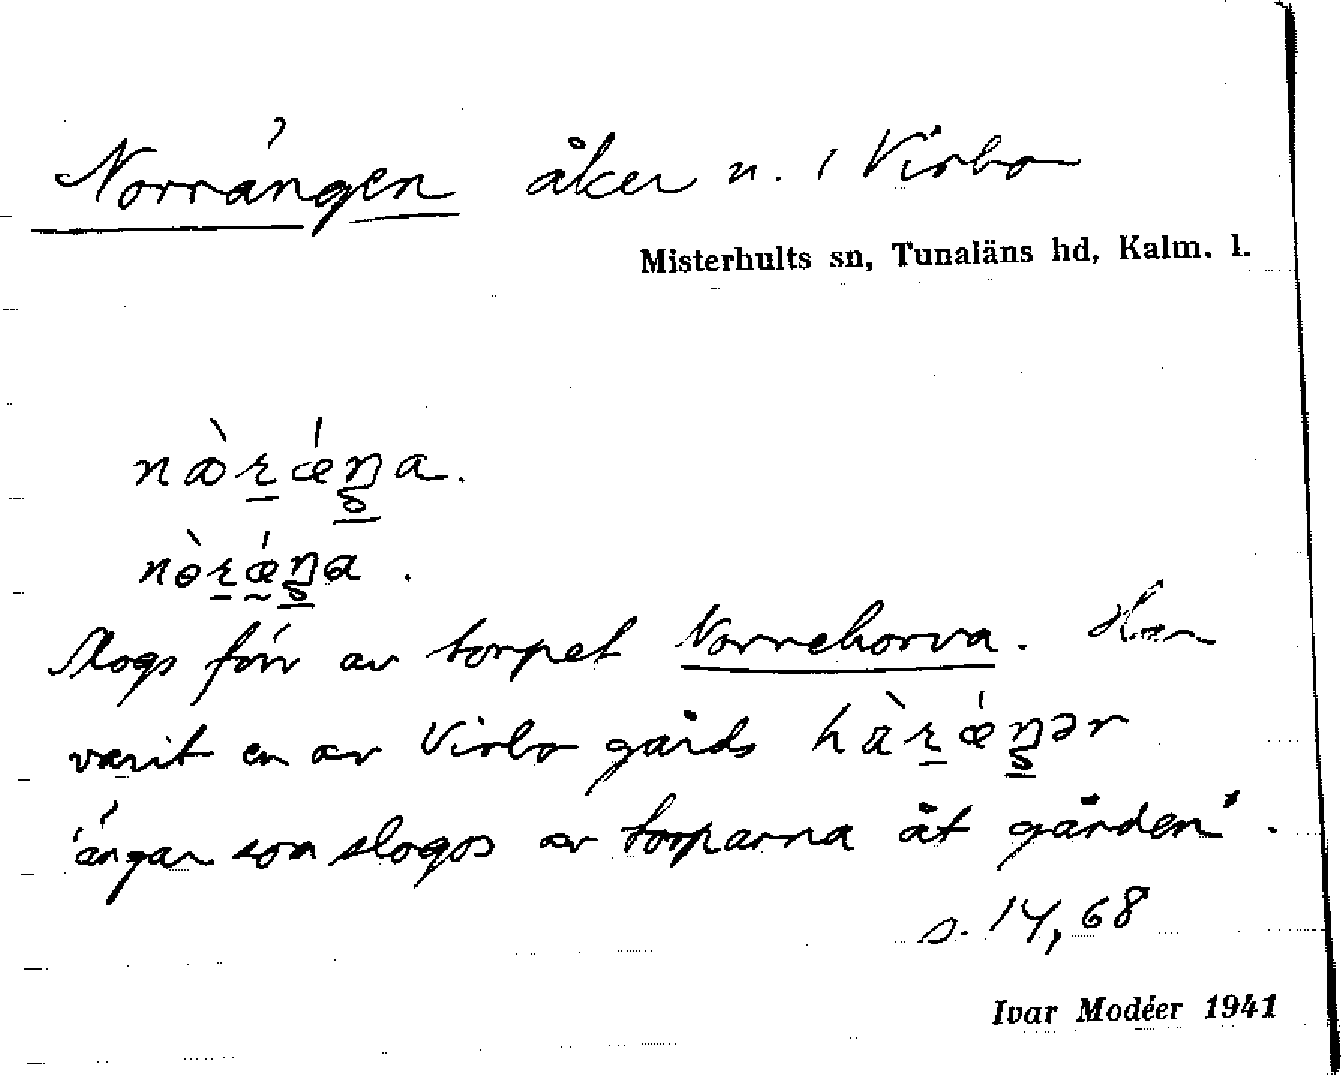 Norrängen åker n. i Virbo
Misterhults sn, Tunaläns hd, Kalm. l.
Slogs förr av torpet Norrehorva. Har
varit en av Virbo gårds
ängar som slogos av torparna åt gården".
s. 14, 68
Ivar Modéer 1941